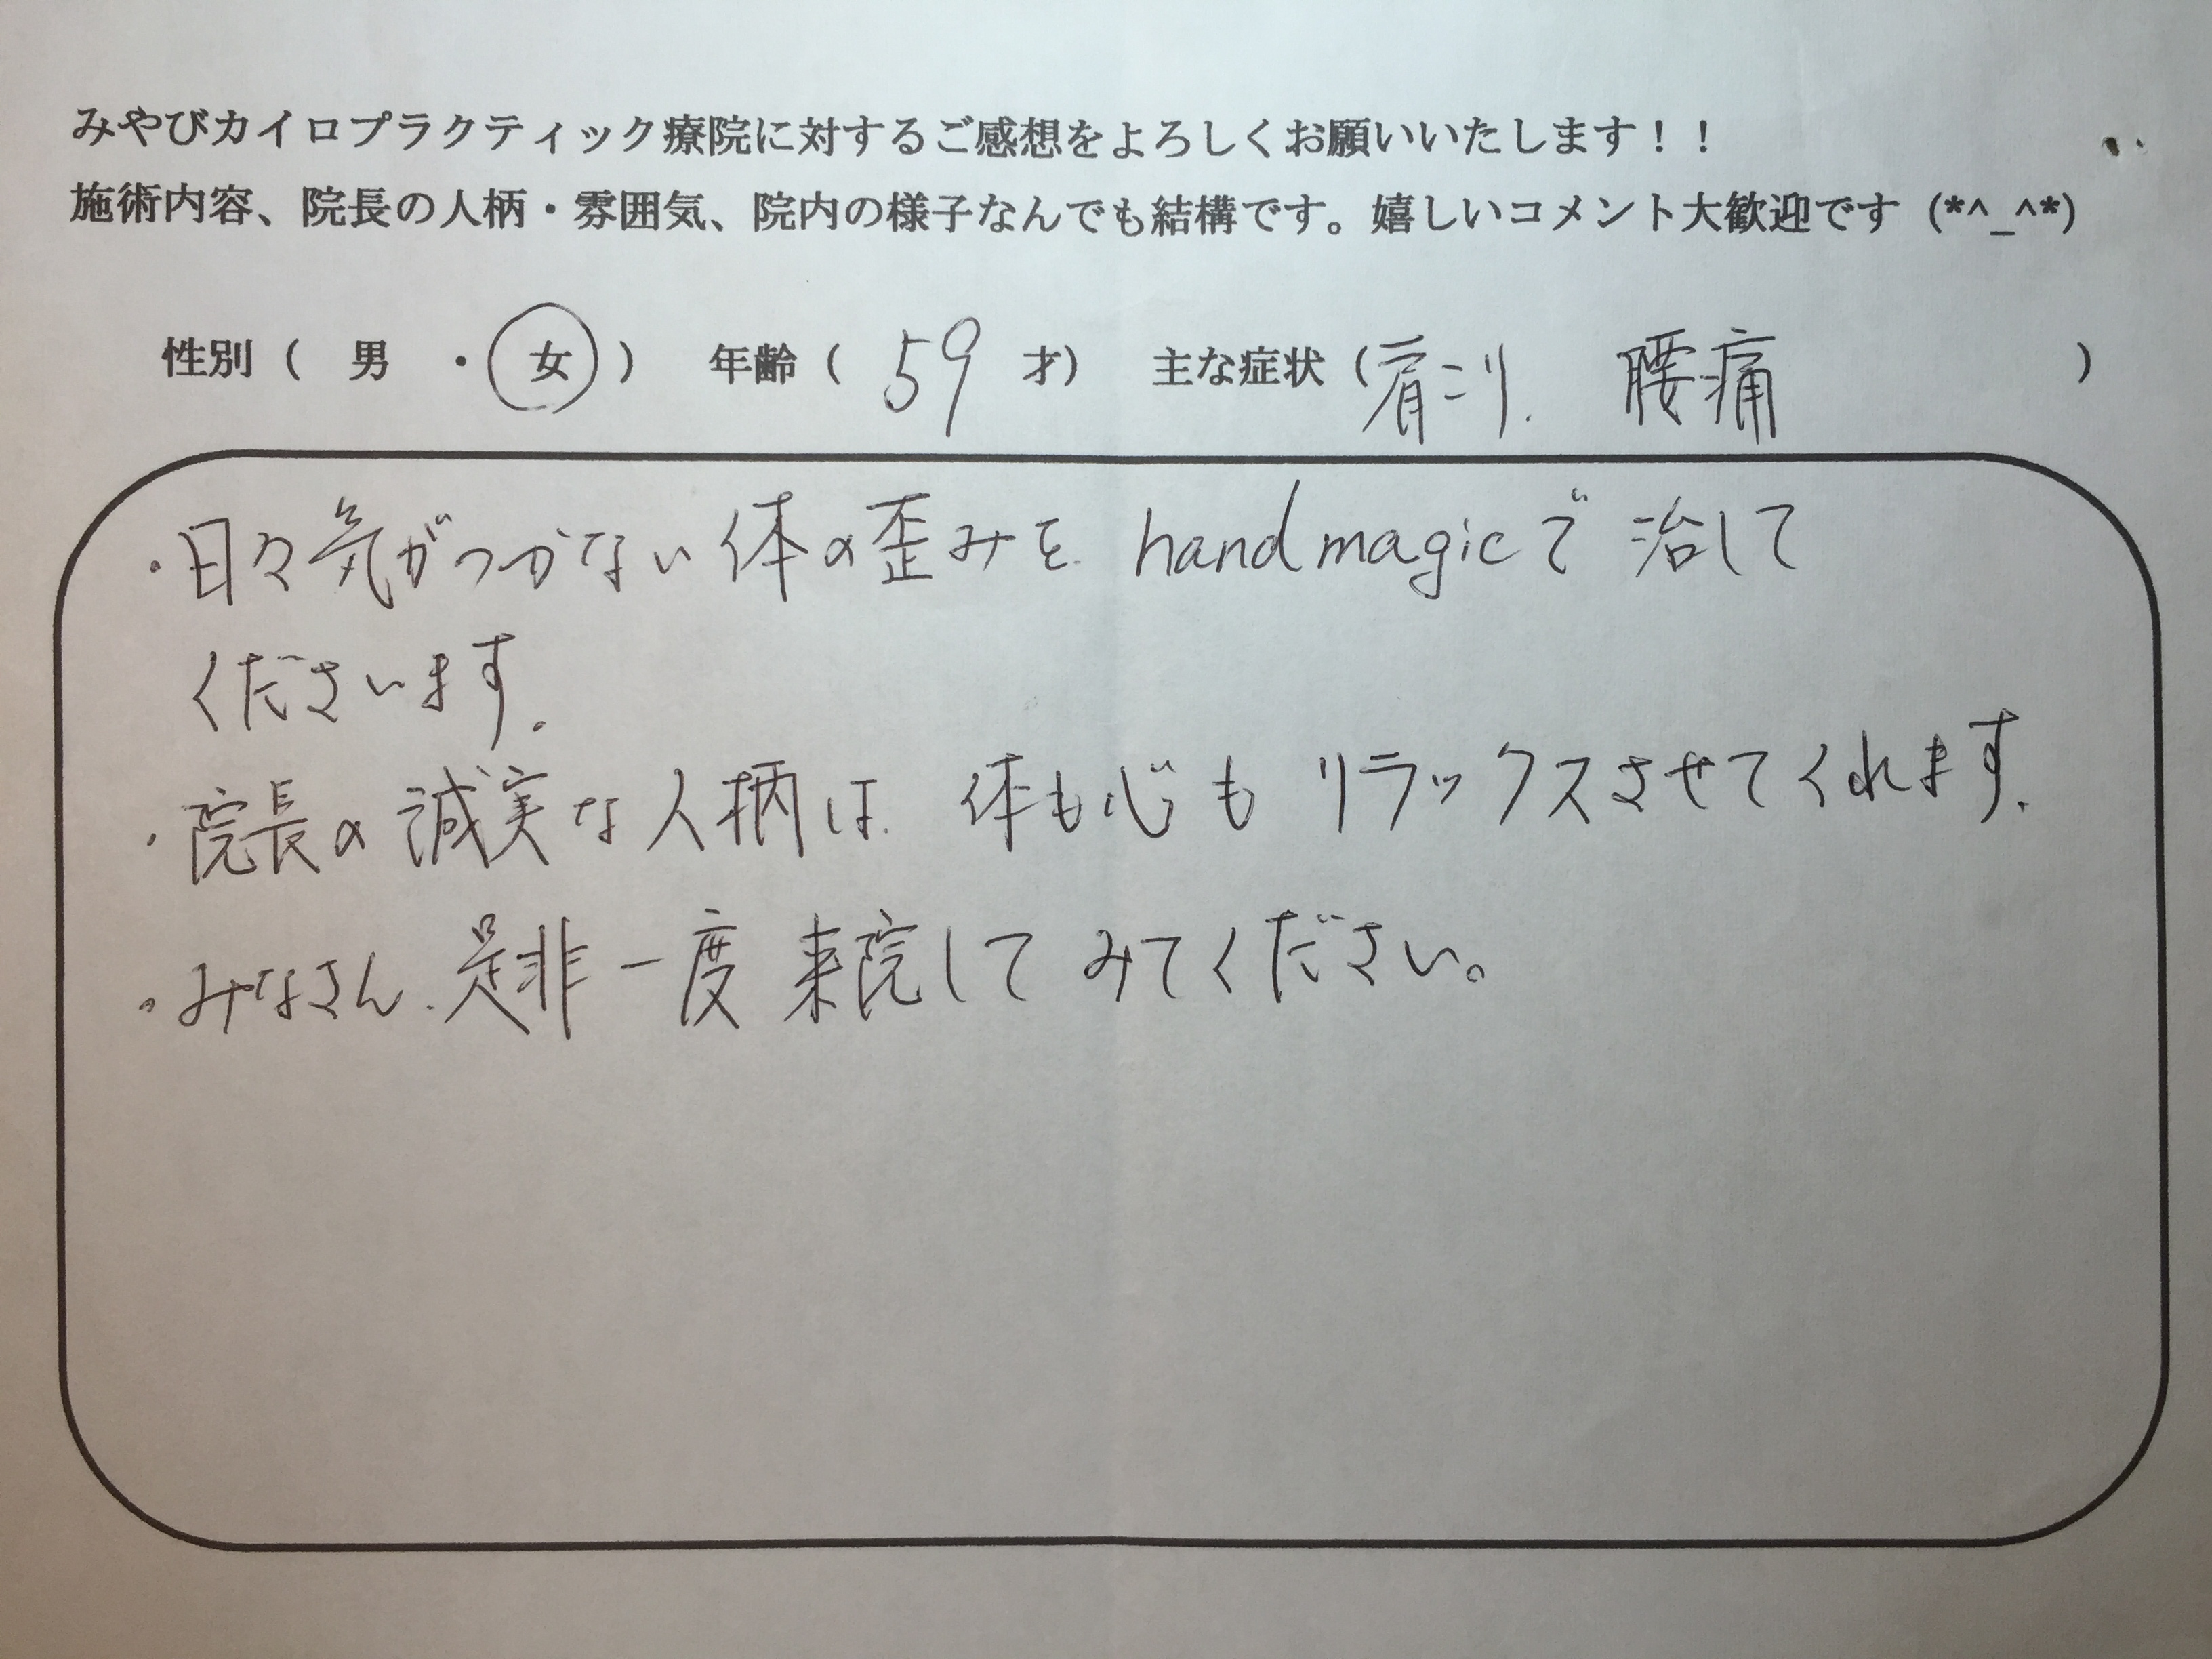 みやびカイロプラクティック療院に対するご感想をよろしくお願いいたします！！
施術内容、院長の人柄・雰囲気、院内の様子なんでも結構です。嬉しいコメント大歓迎です (*^_^*)
性別（ 男 ・ 女 ） 年齢（ 59 才） 主な症状（肩こり. 腰痛 ）
・日々気がつかない体の歪みを hand magicで 治して
くださいます.
・院長の誠実な人柄は 体も心も リラックスさせてくれます.
・みなさん.是非一度 来院して みてください。